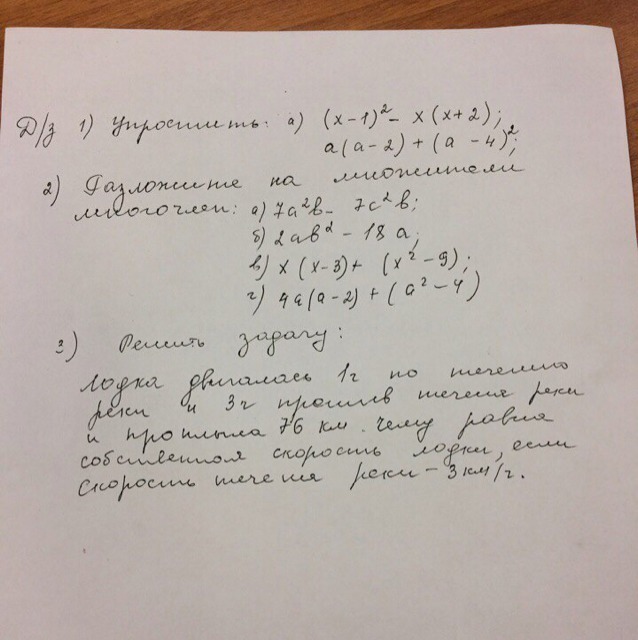 Д/з 1) Упростить: а) (x-1)² - x(x+2);
a(a-2)+(a-4)²;
2) Разложите на множители
многочлен: а) 7a²b - 7c²b;
б) 2ab² - 18a;
в) x(x-3)+(x²-9);
г) 4a(a-2)+(a²-4)
3) Решить задачу:
Лодка двигалась 1ч по течению
реки и 3ч против течения реки
и проплыла 76 км. Чему равна
собственная скорость лодки, если
скорость течения реки - 3 км/ч.